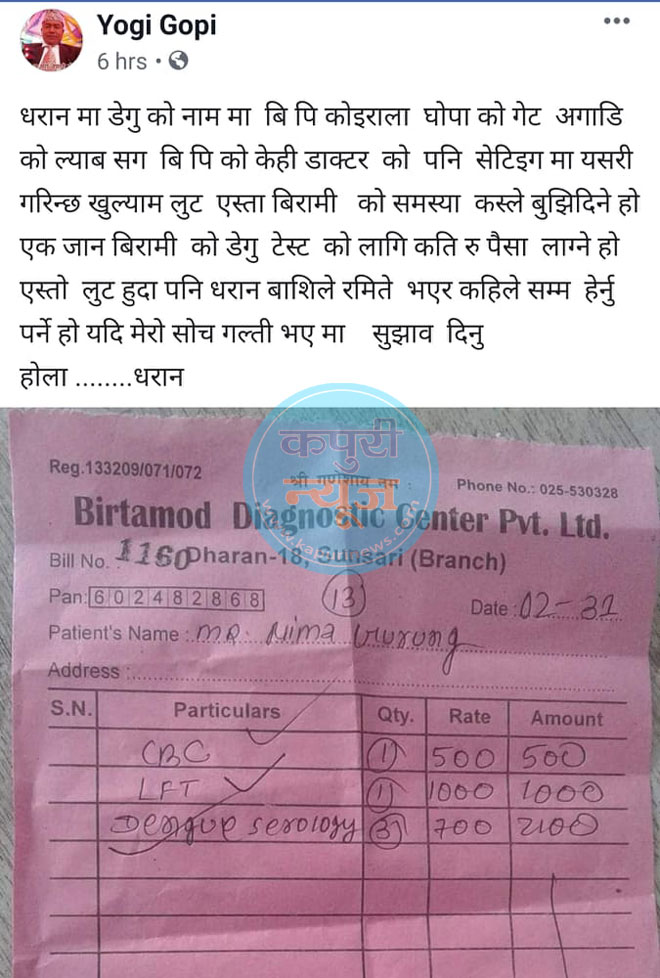 Yogi Gopi
6 hrs
धरान मा डेगु को नाम मा बि पि कोइराला घोपा को गेट अगाडि
को ल्याब सग बि पि को केही डाक्टर को पनि सेटिइग मा यसरी
गरिन्छ खुल्याम लुट एस्ता बिरामी को समस्या कस्ले बुझिदिने हो
एक जान बिरामी को डेगु टेस्ट को लागि कति रु पैसा लाग्ने हो
एस्तो लुट हुदा पनि धरान बाशिले रमिते भएर कहिले सम्म हेर्नु
पर्ने हो यदि मेरो सोच गल्ती भए मा सुझाव दिनु
होला ........धरान
कपुरी
न्यूज
Reg.133209/071/072
श्री गणेशाय नम :
Phone No.: 025-530328
Birtamod Diagnostic Center Pvt. Ltd.
Bill No. : 1160 Dharan-18, Sunsari (Branch)
Pan: 602482868 13 Date : 02-31
Patient's Name : MR. Nima Gurung
Address :
S.N. Particulars Qty. Rate Amount
CBC 1 500 500
LFT 1 1000 1000
Dengue serology 3 700 2100